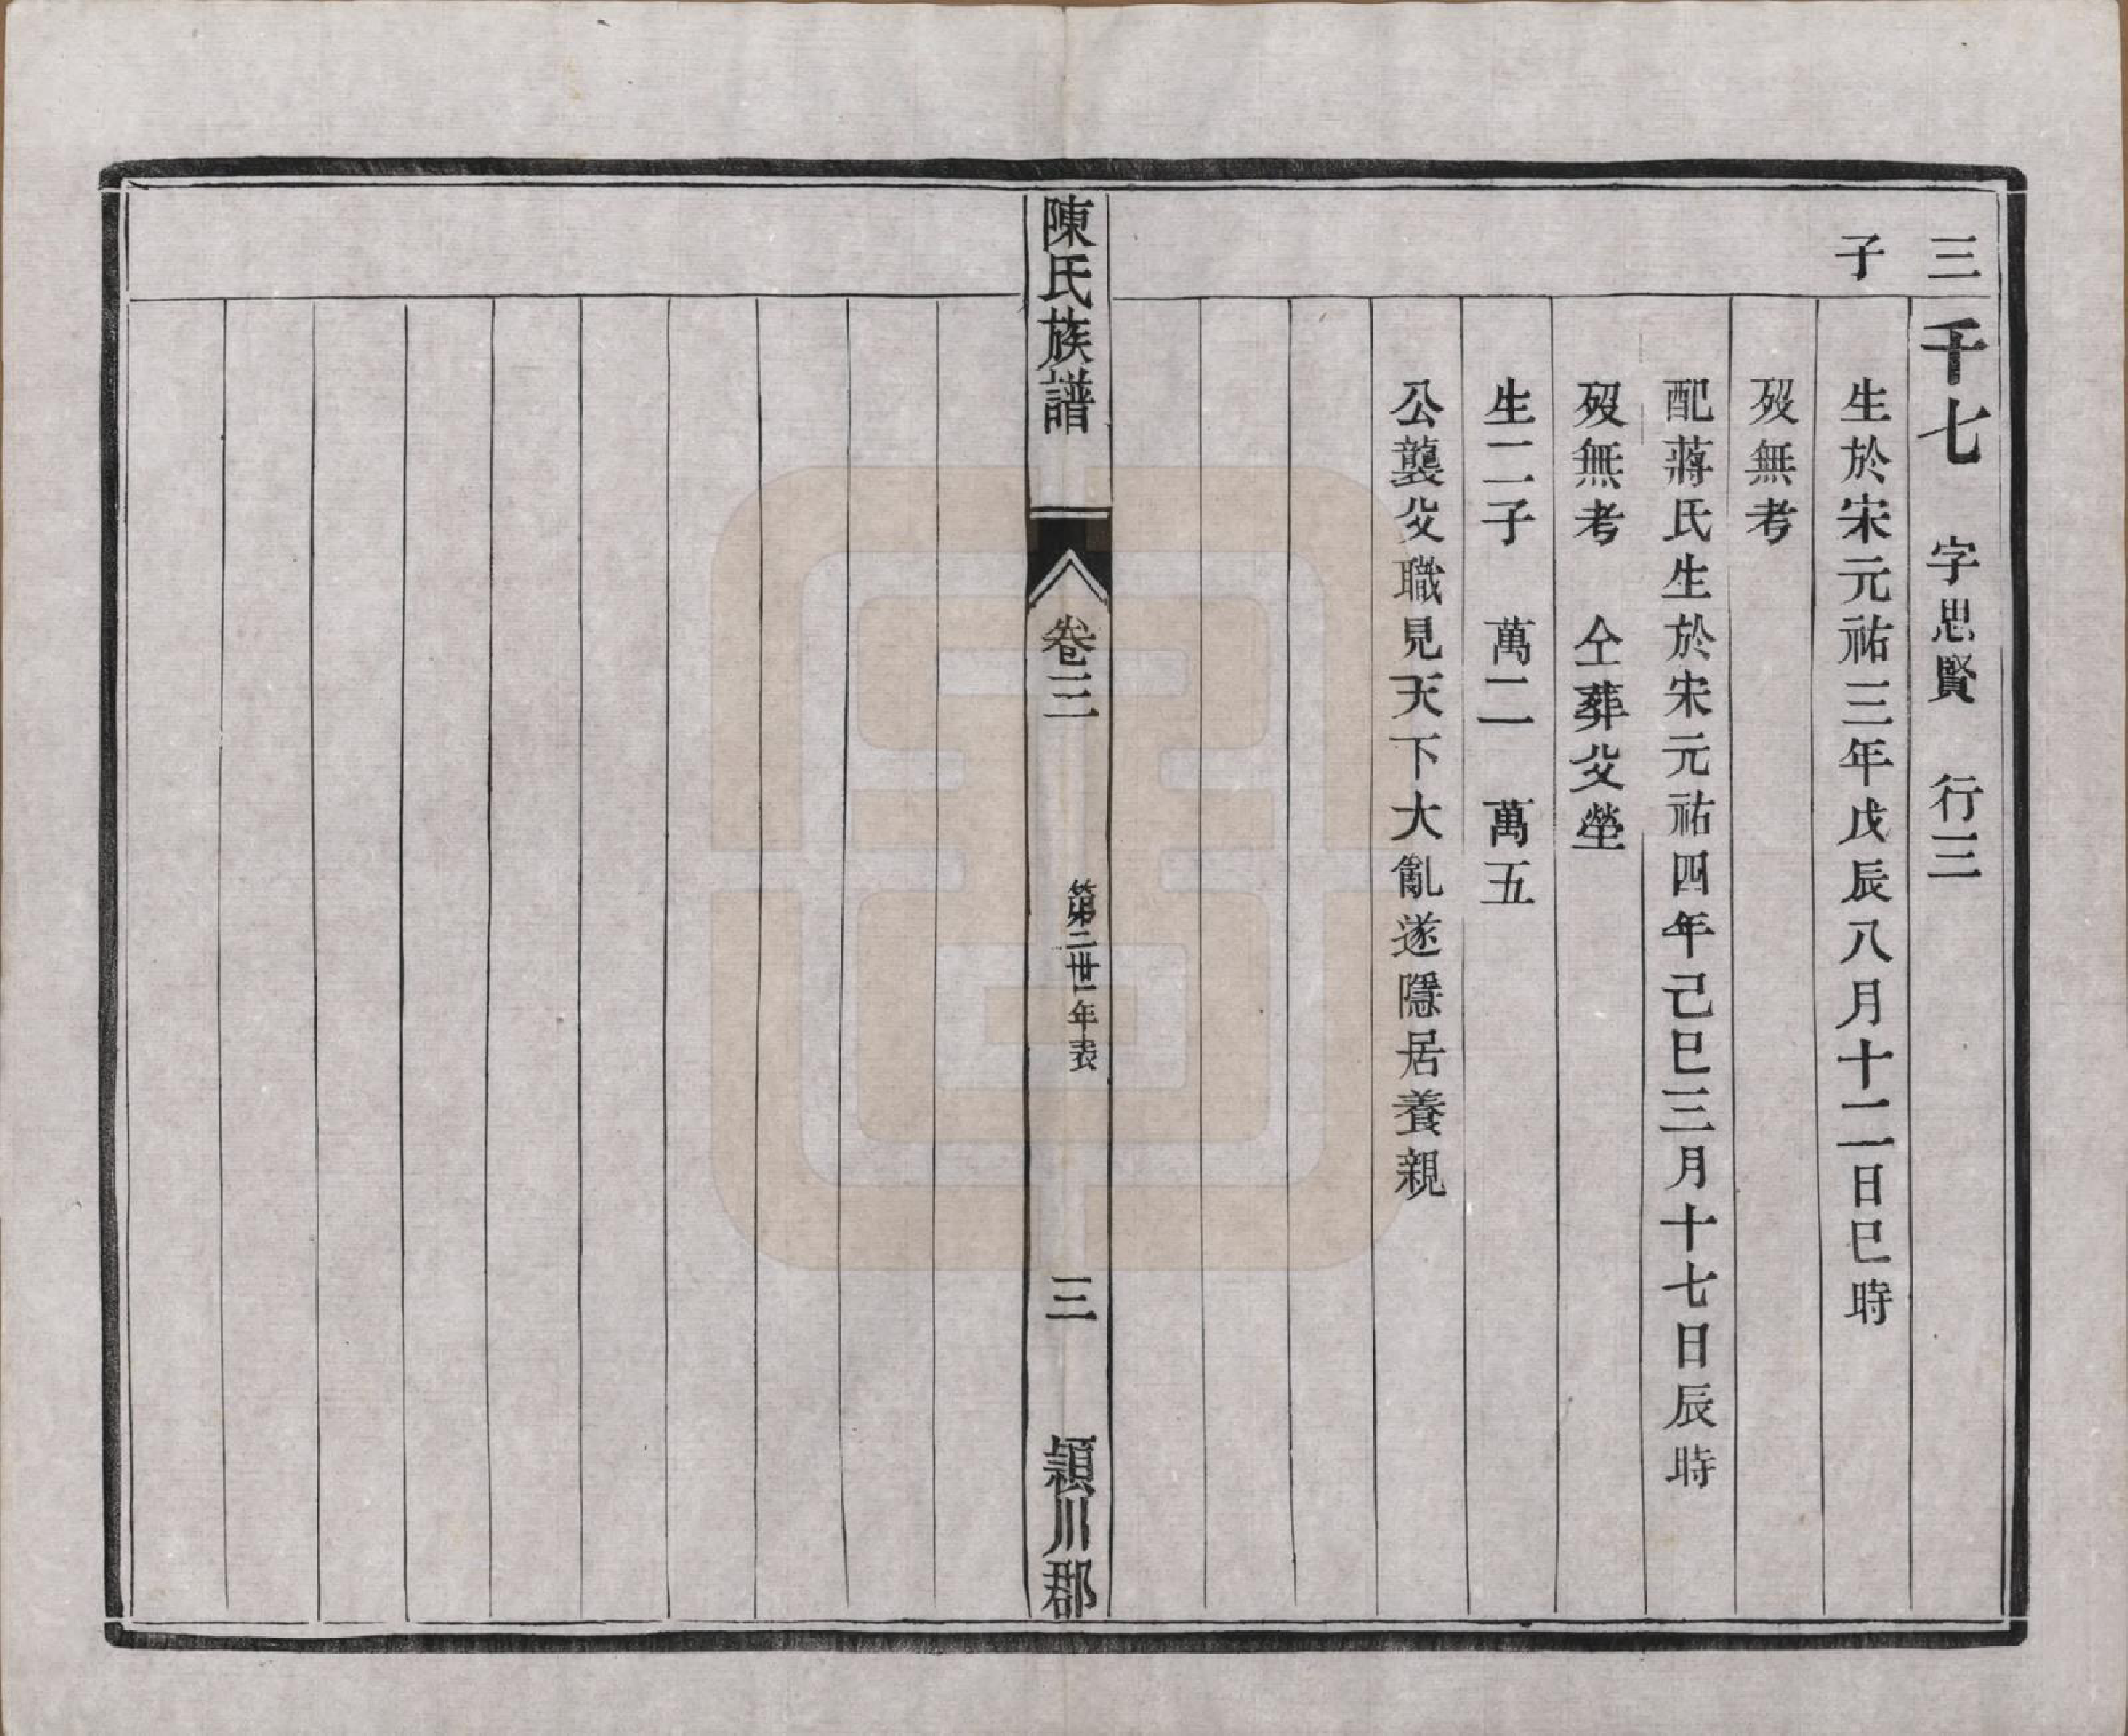 三
子
千七　字思賢　行三
生於宋元祐三年戊辰八月十二日巳時
歿無考
配蔣氏生於宋元祐四年己巳三月十七日辰時
歿無考　仝葬父塋
生二子　萬二　萬五
公襲父職見天下大亂遂隱居養親
陳氏族譜　卷三　第二世年表　三　潁川郡